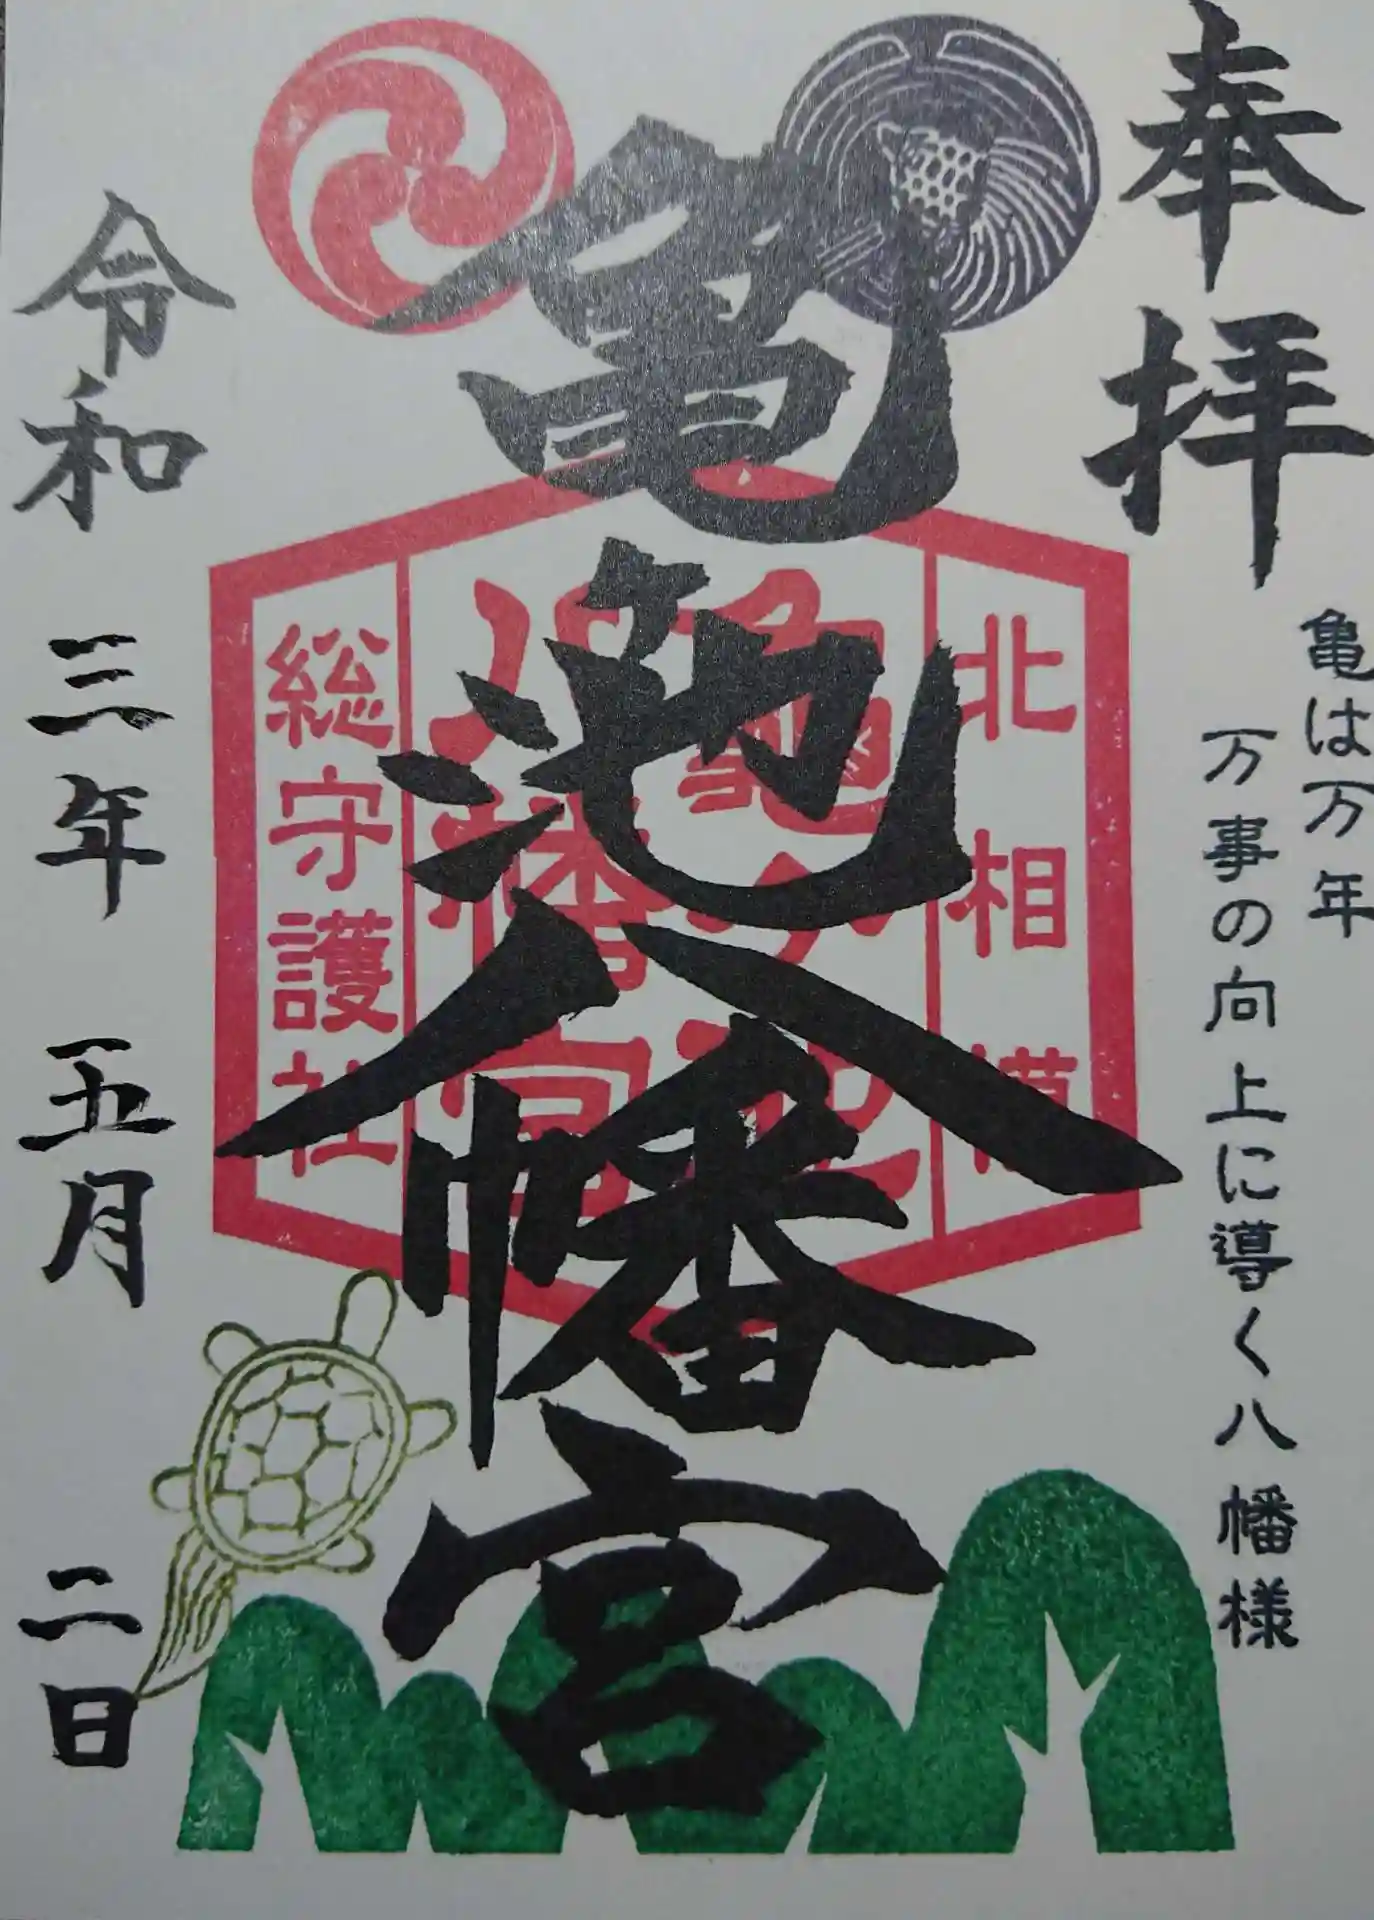 奉拝
亀は万年
万事の向上に導く八幡様
亀池八幡宮
北相模
亀ヶ池
八幡宮
総守護社
令和三年五月二日